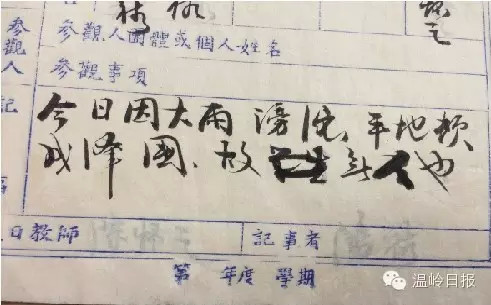 參觀人
參觀人團體或個人姓名
參觀事項
記
今日因大雨滂沱、平地頓
成澤國、故
也
日教師
記事者
第 年度 學期
温岭日报